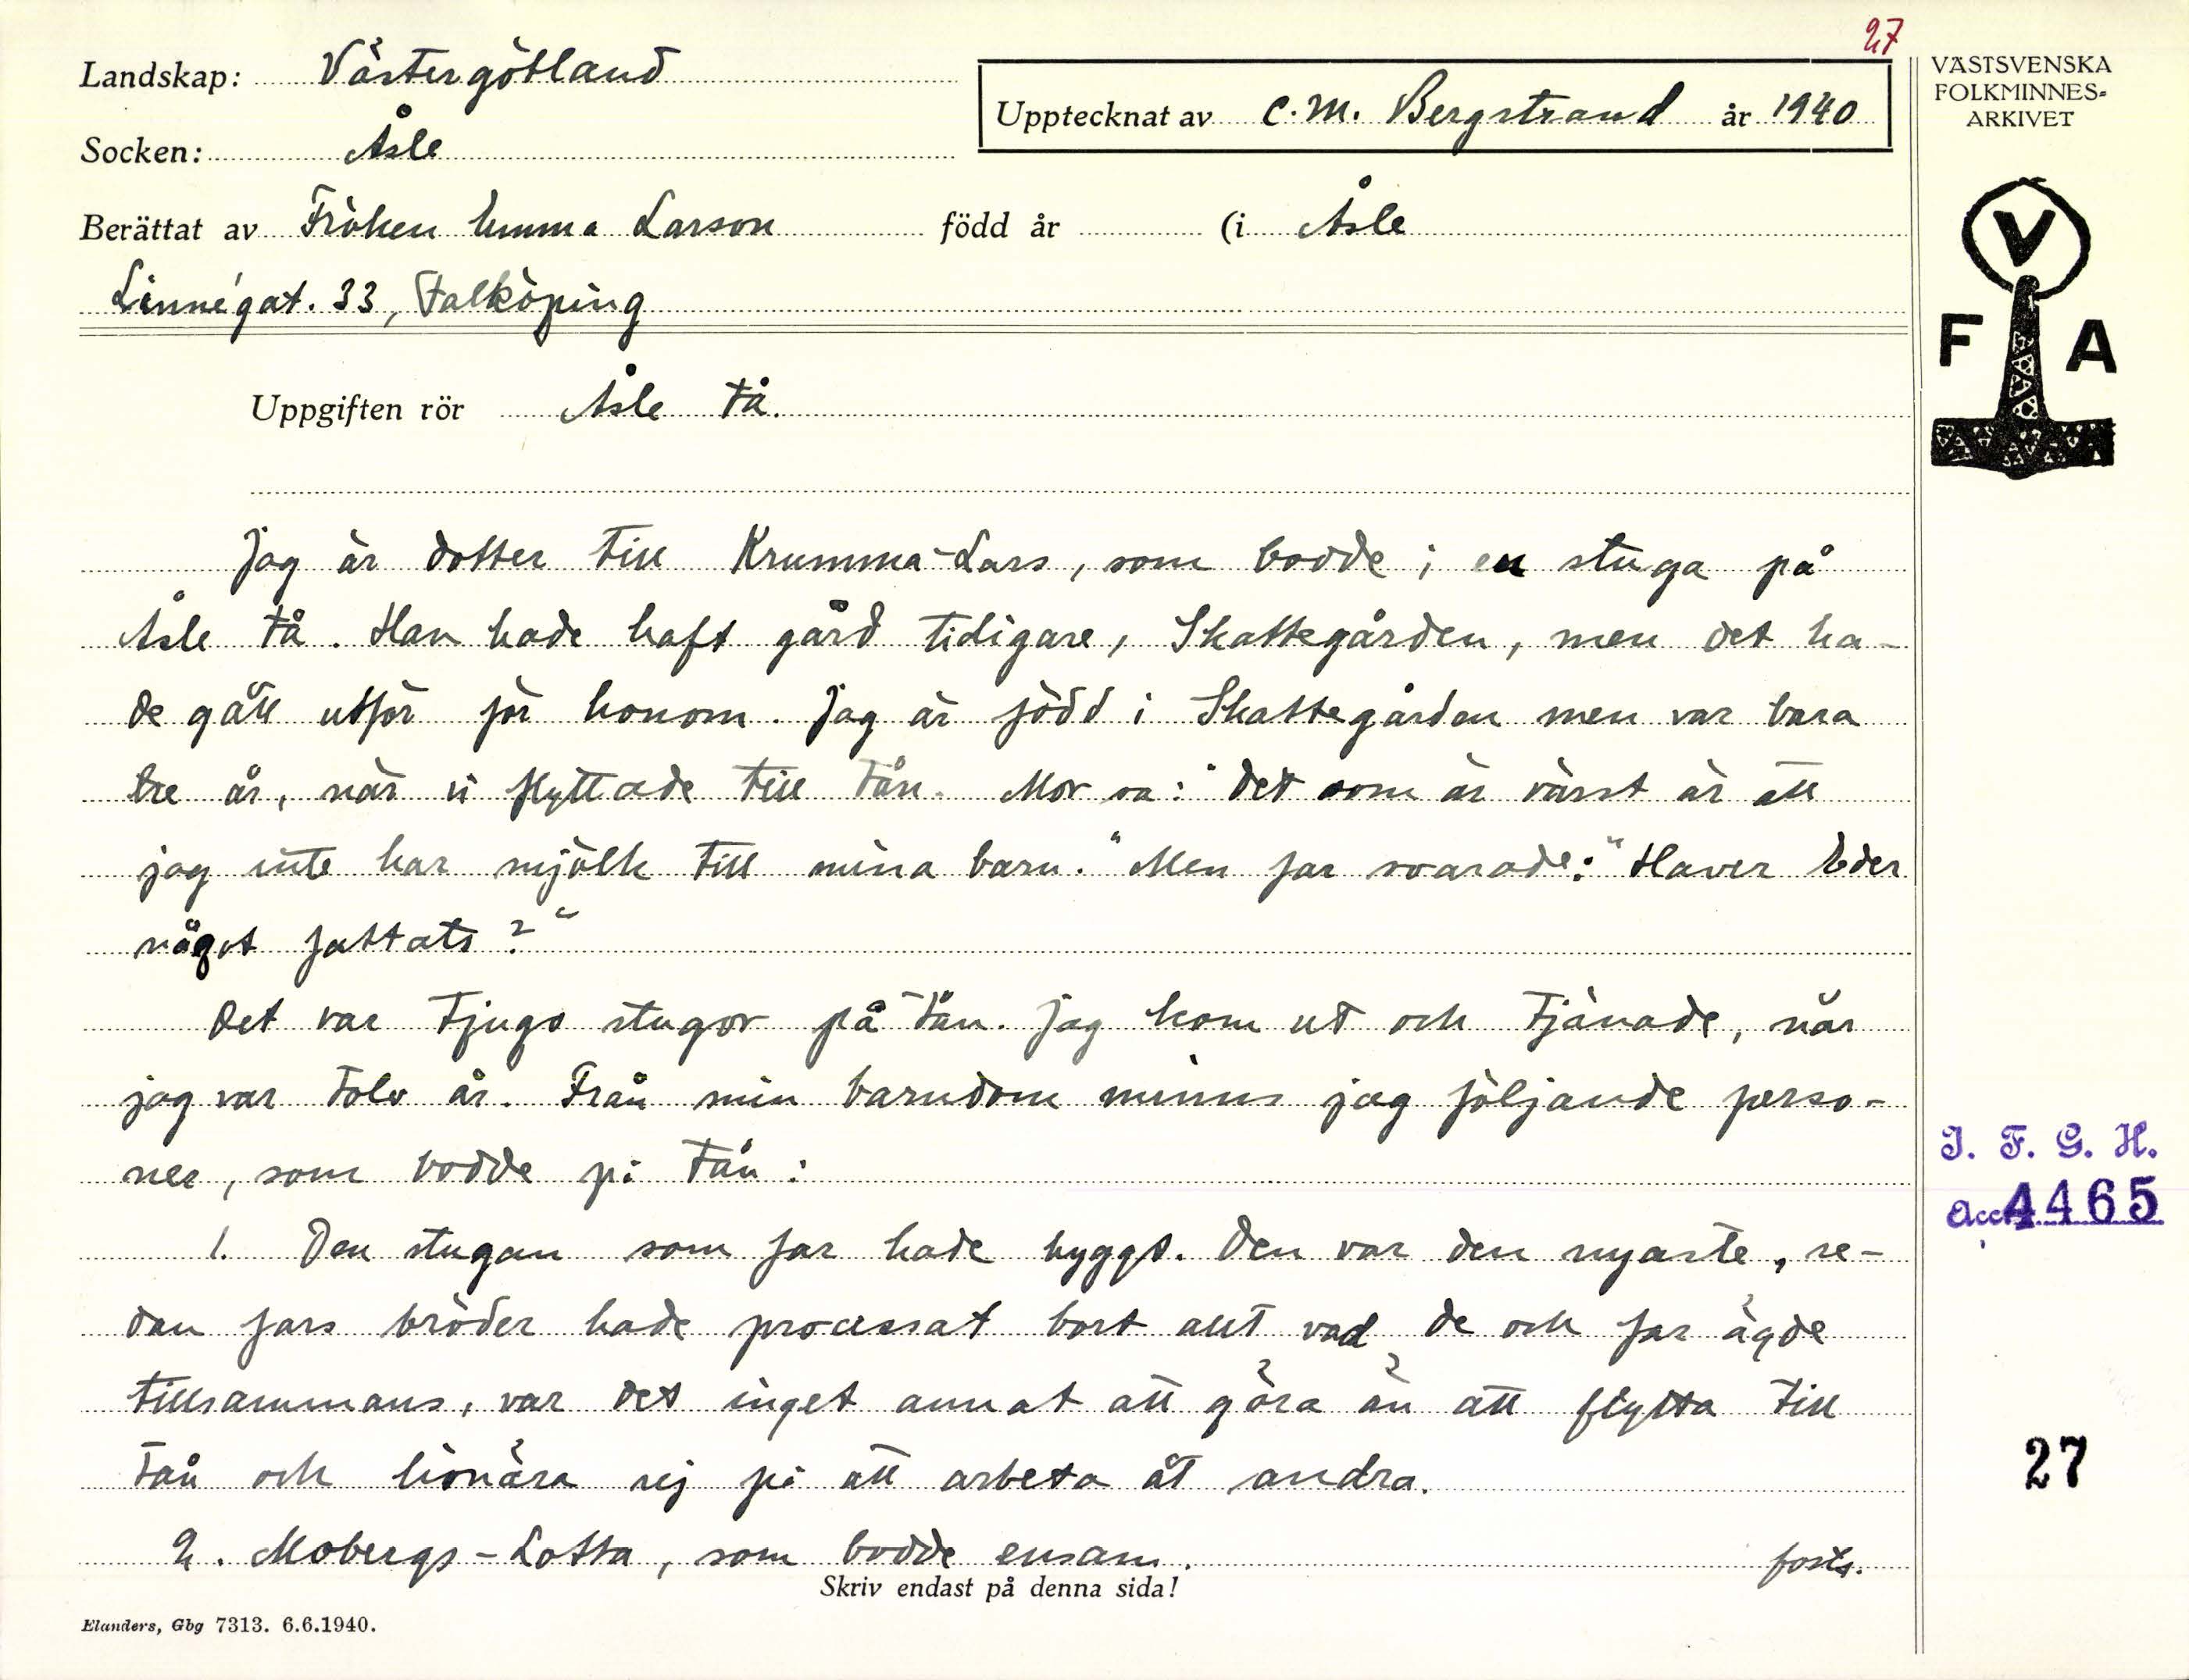 27
Landskap: Västergötland
Upptecknat av C. M. Bergstrand år 1940
Socken: Åsle
Berättat av Fröken Emma Larson född år (i Åsle
Linnégat. 33, Falköping
Uppgiften rör Åsle tå.
VÄSTSVENSKA
FOLKMINNES=
ARKIVET
V
F A
Jag är dotter till Krumma-Lars, som bodde i en stuga på
Åsle tå. Han hade haft gård tidigare, Skattegården, men det ha-
de gått utför för honom. Jag är född i Skattegården men var bara
tre år, när vi flyttade till tån. Mor sa: "Det som är värst är att
jag inte har mjölk till mina barn." Men far svarade: "Haver Eder
något fattats?"
Det var tjugo stugor på tån. Jag kom ut och tjänade, när
jag var tolv år. Från min barndom minns jag följande perso-
ner, som bodde på tån:
1. Den stugan som far hade byggt. Den var den nyaste, se-
dan fars bröder hade processat bort allt vad de och far ägde
tillsammans, var det inget annat att göra än att flytta till
tån och livnära sej på att arbeta åt andra.
2. Mobergs-Lotta, som bodde ensam. forts.
Skriv endast på denna sida!
Elanders, Gbg 7313. 6.6.1940.
I. F. G. H.
Acc. 4465
27